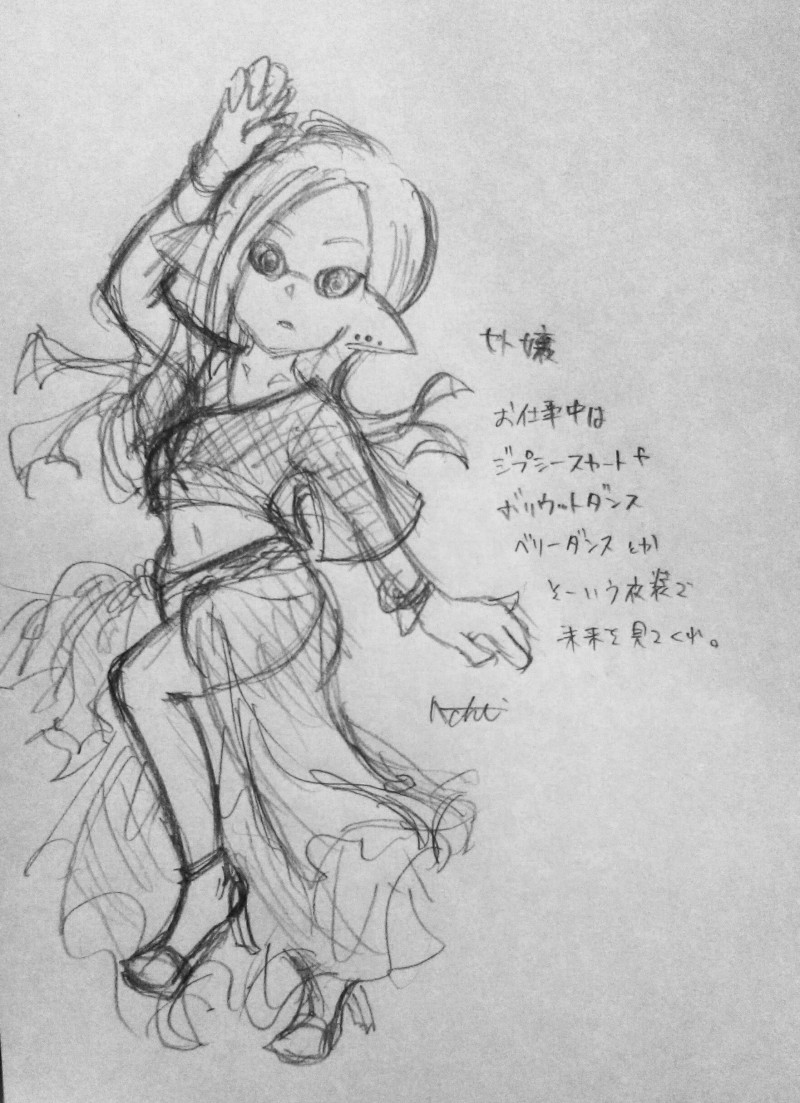 セト嬢
お仕事中は
ジプシースカートや
ボリウットダンス
ベリーダンスとか
そーいう衣装で
未来を見てくれ。